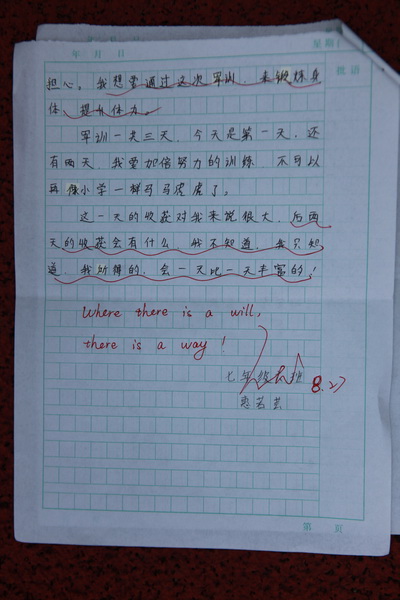 年 月 日 星期
批语
担心。我想要通过这次军训，来锻炼身
体，提升体力。
军训一共三天，今天是第一天，还
有两天，我要加倍努力的训练，不可以
再像小学一样马马虎虎了。
这一天的收获对我来说很大，后两
天的收获会有什么，我不知道，我只知
道，我所得的，会一天比一天丰富的！
Where there is a will,
there is a way!
七年级
8.27
第 页